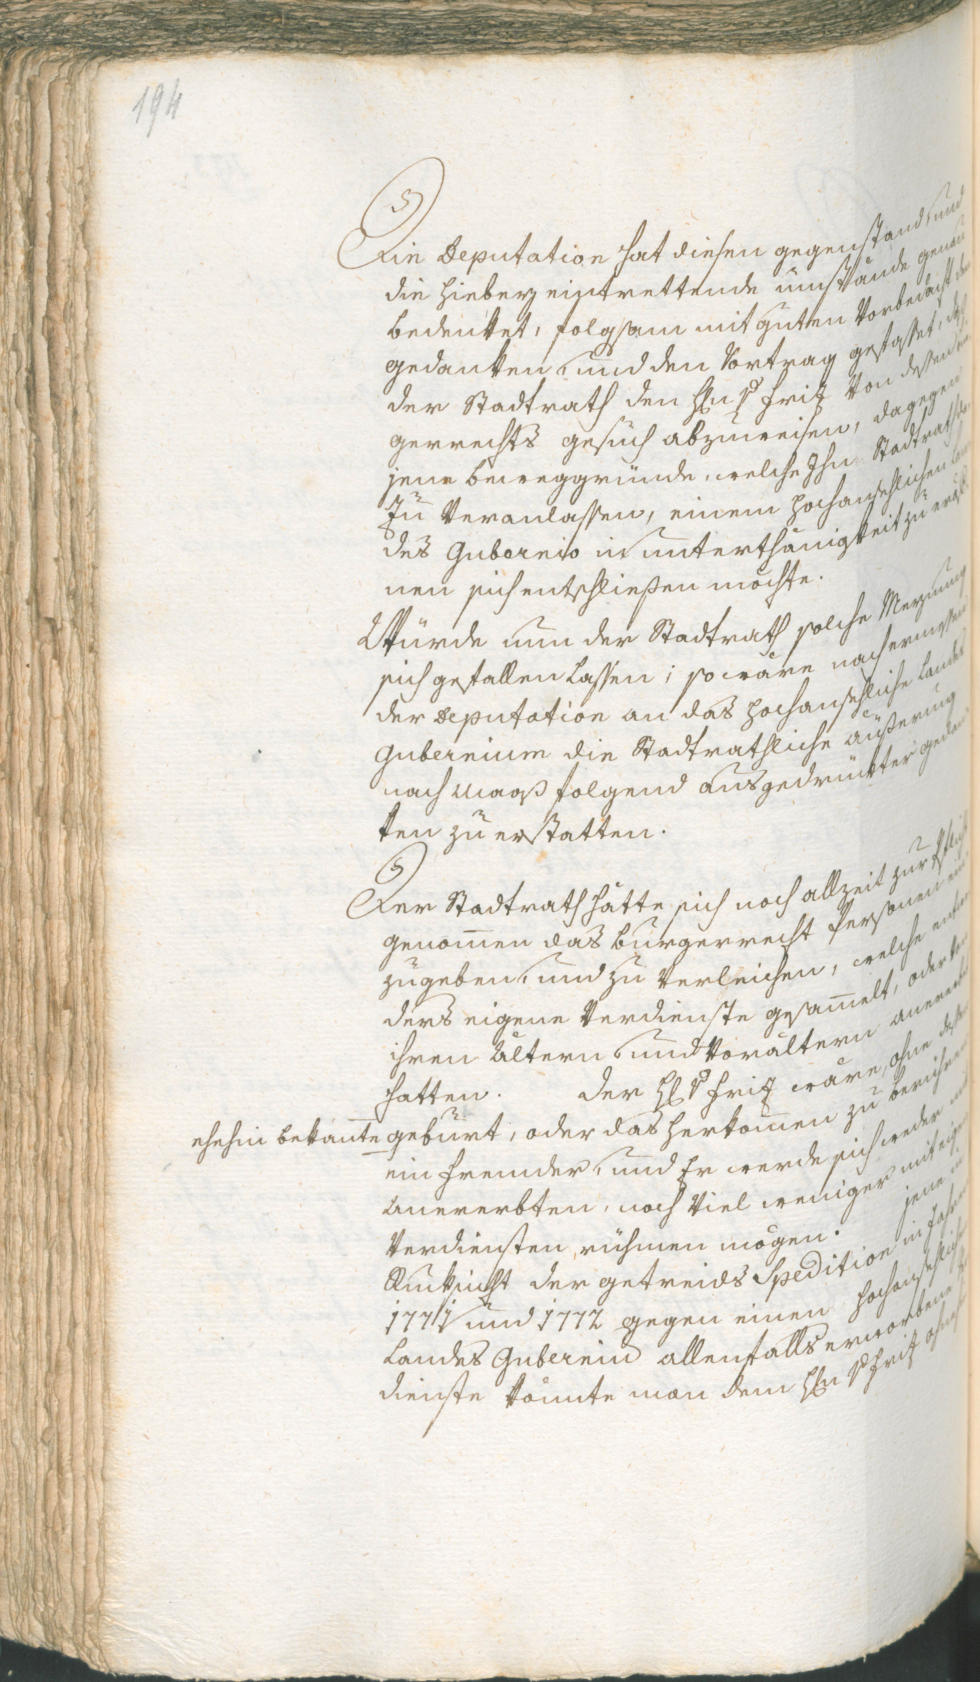 194
Die Deputation hat diesen gegenstand, und
die hiebey eintrettende umstände genau
bedenket, folgsam mit guten Vorbedacht den
gedanken, und den Vortrag gefasset, daß
der Stadtrath den H: v Friz von dessen
gerrechts gesuch abzuweisen, dagegen
jene beweggründe, welche Ihn Stadtrath
zu Veranlassen, einem hochansehlichen
des Gubernio in unterthänigkeit zu
nen sich entschließen möchte.
Würde nun der Stadtrath solche Meynung
sich gefallen lassen; so wäre nach ermessen
der Deputation an das hochansehliche Landes
Gubernium die Stadtrathliche äußerung
nach maaß folgend ausgedruckter gedan
ken zu erstatten.
Der Stadtrath hätte sich noch allzeit zur Pflicht
genom̄en das burgerrecht Personen ein
zugeben, und zu Verleichen, welche entwe
ders eigene Verdienste gesam̄elt, oder von
ihren ältern, und Vorältern anererbt
hatten. Der H: v Friz wäre, ohne dessen
ehehin bekan̄te geburt, oder das herkom̄en zu berühren
ein fremder, und Er werde sich weder mit
anererbten, noch Viel weniger mit eigenen
Verdiensten rühmen mögen. jene in
Rucksicht der getreids Spedition in Jahren
1771 und 1772 gegen einen hochansehlichen
Landes Gubernio allenfalls erworbene
dienste könnte man dem H: v Friz